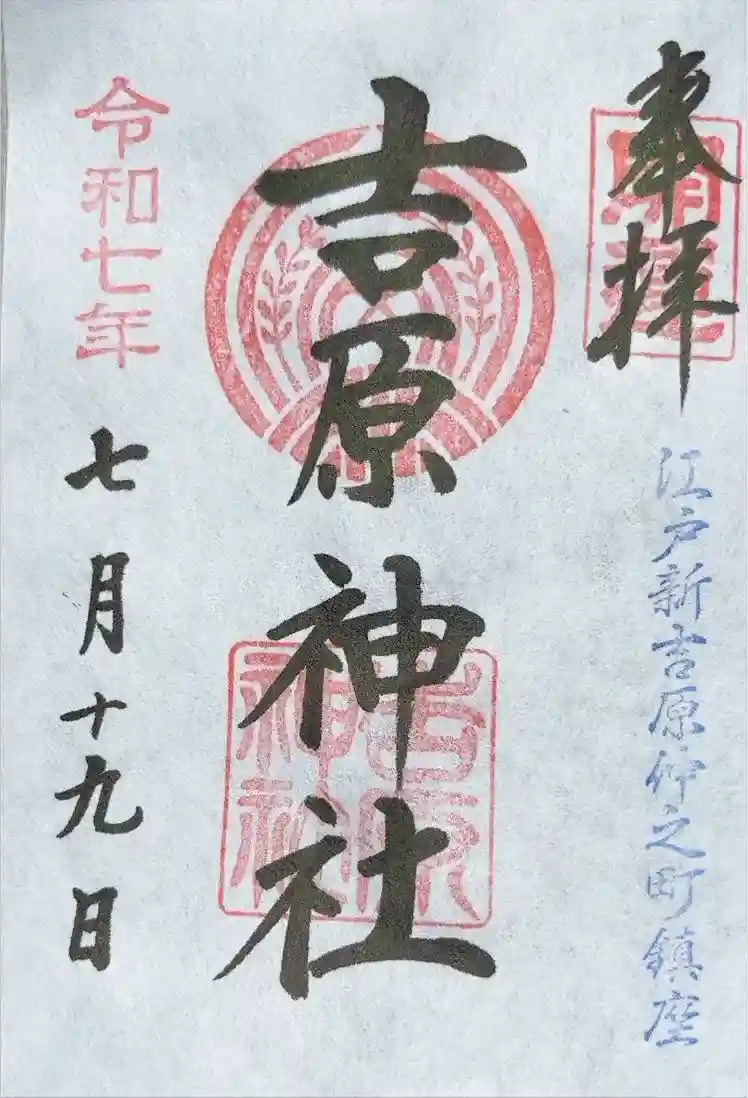 奉拝
江戸新吉原仲之町鎮座
吉原神社
吉原神社
令和七年
七月十九日